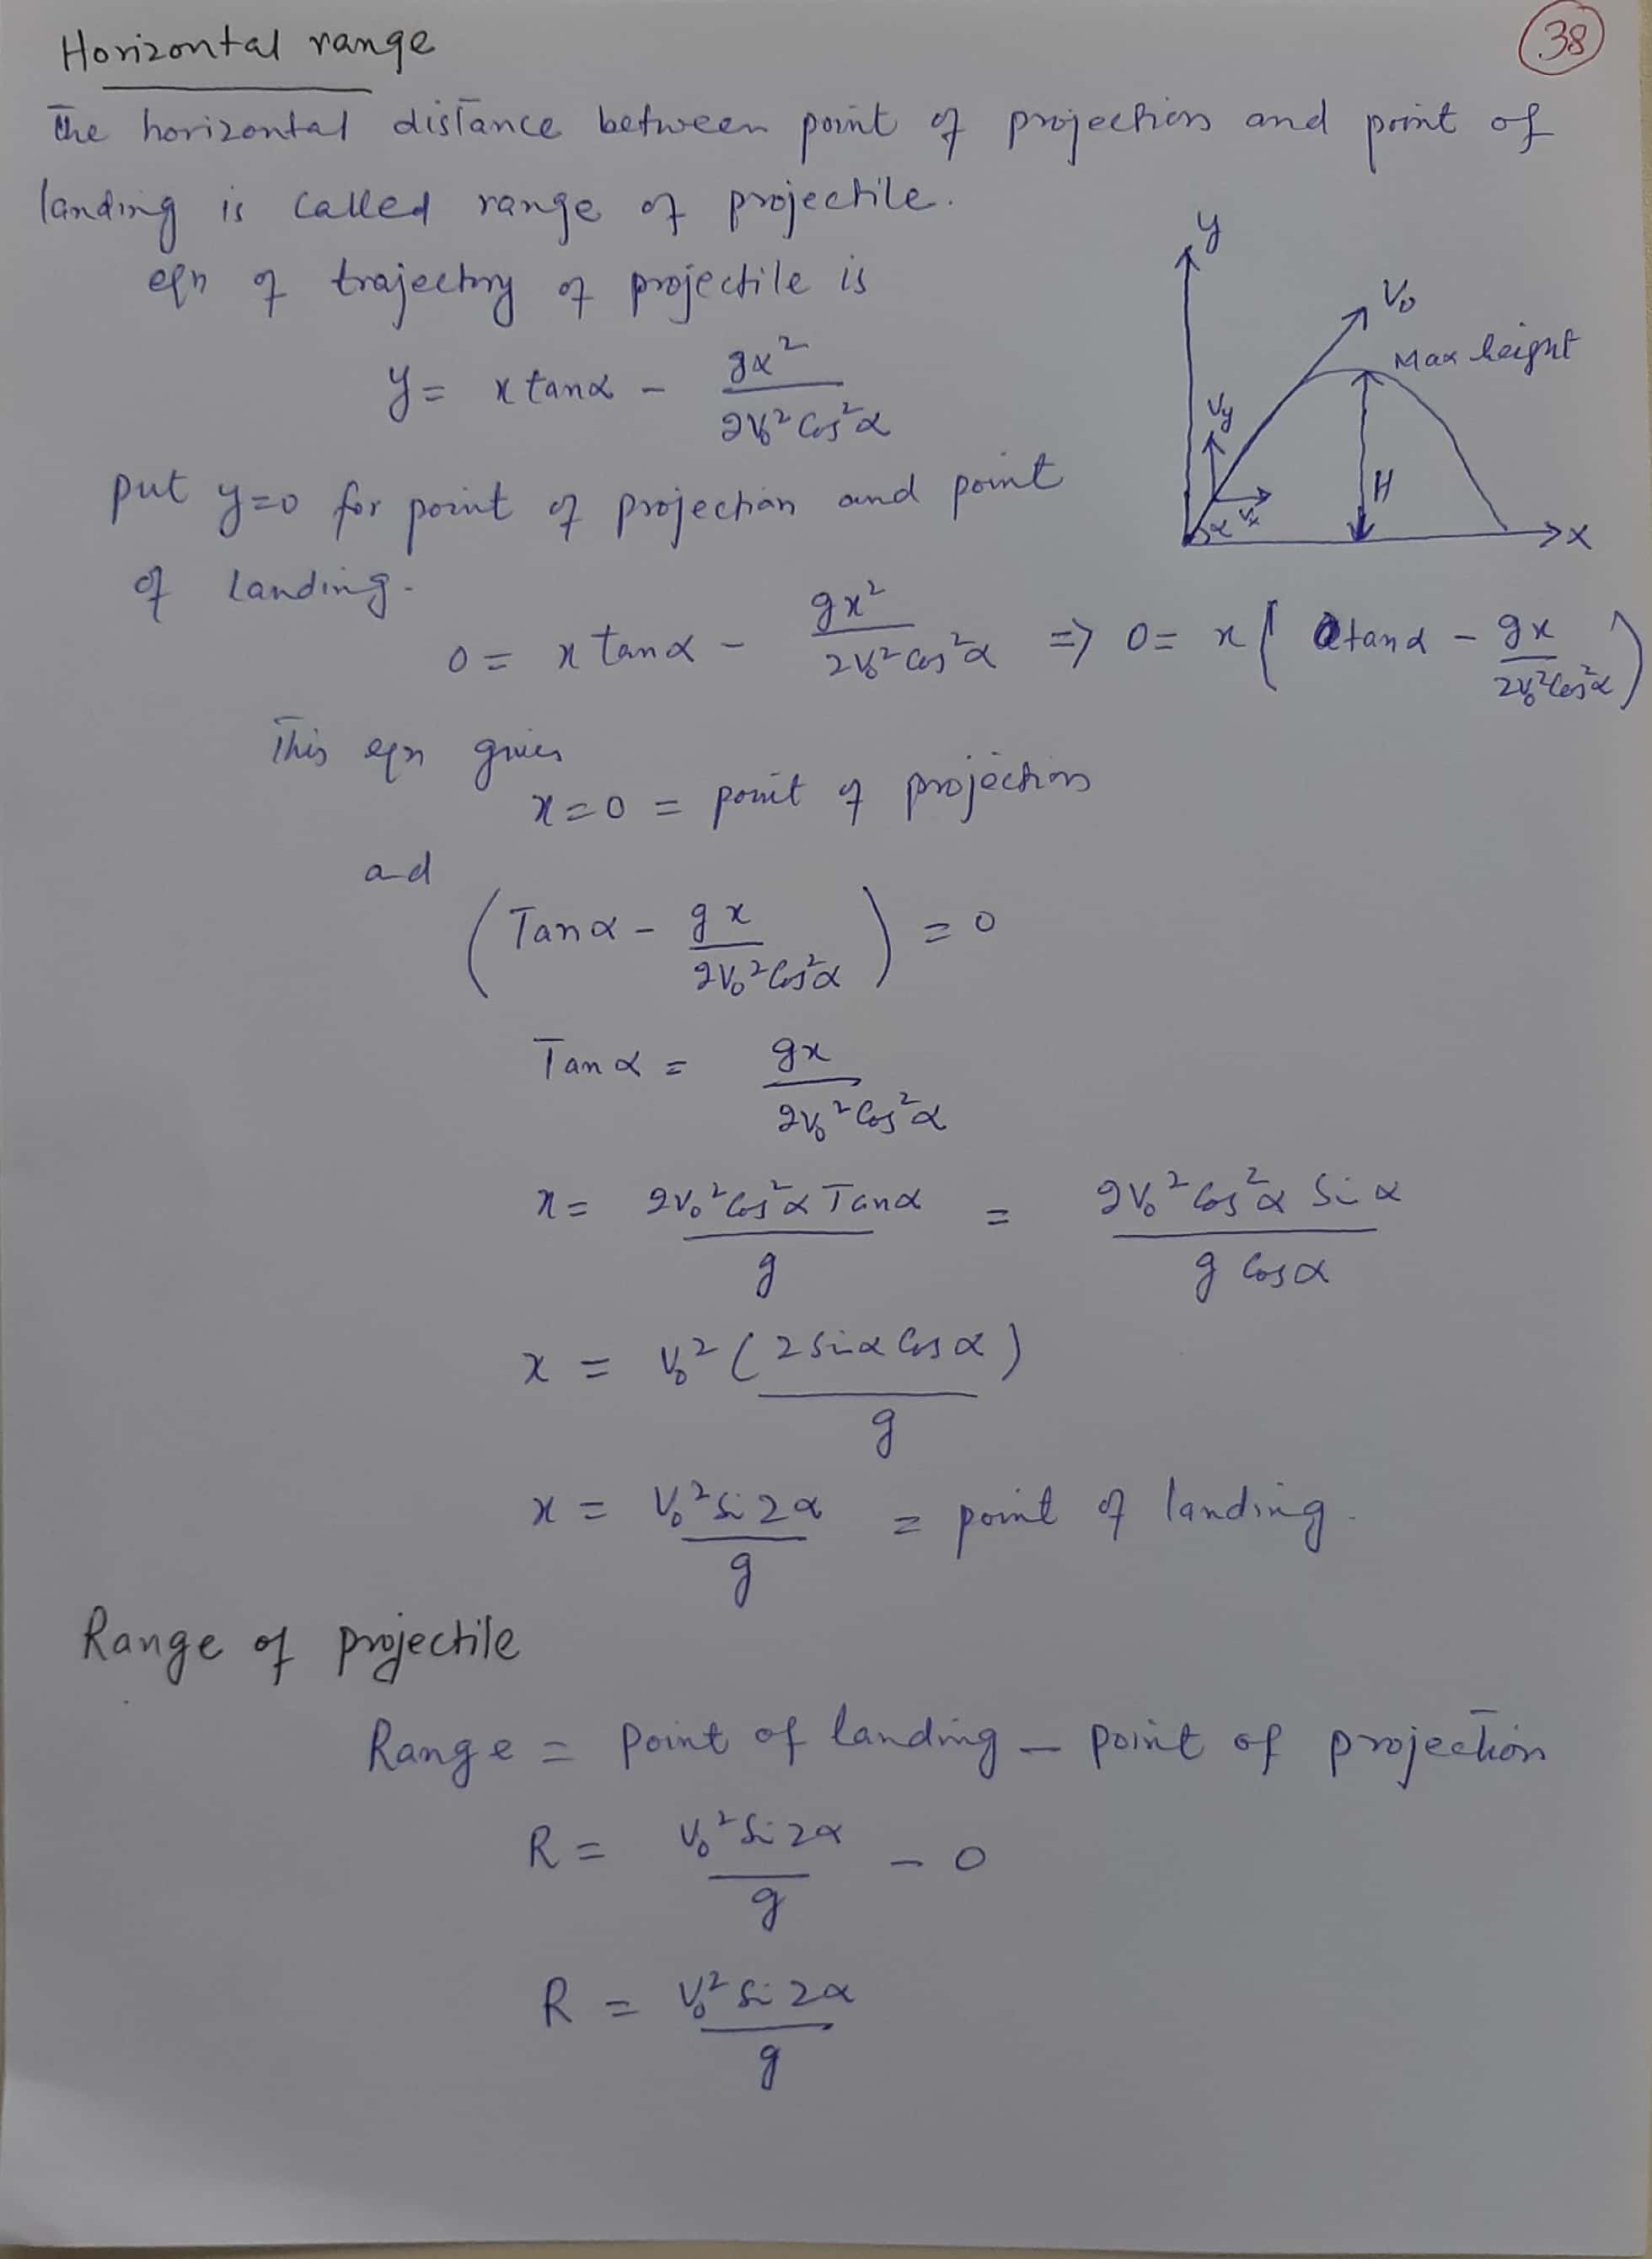 Horizontal range
38
The horizontal distance between point of projection and point of
landing is called range of projectile.
eqn of trajectory of projectile is
y = x tanα - gx² / 2v₀² Cos²α
put y=0 for point of projection and point
of landing.
y
V₀
Max height
Vy
H
α
Vx
x
0 = x tanα - gx² / 2v₀² cos²α => 0 = x ( tanα - gx / 2v₀² Cos²α )
This eqn gives
x=0 = point of projection
and
( Tanα - gx / 2V₀² Cos²α ) = 0
Tanα = gx / 2v₀² Cos²α
x = 2V₀² Cos²α Tanα / g = 2V₀² Cos²α Sinα / g Cosα
x = v₀² (2 Sinα Cosα) / g
x = V₀² Sin 2α / g = point of landing.
Range of projectile
Range = point of landing - point of projection
R = V₀² Sin 2α / g - 0
R = V₀² Sin 2α / g